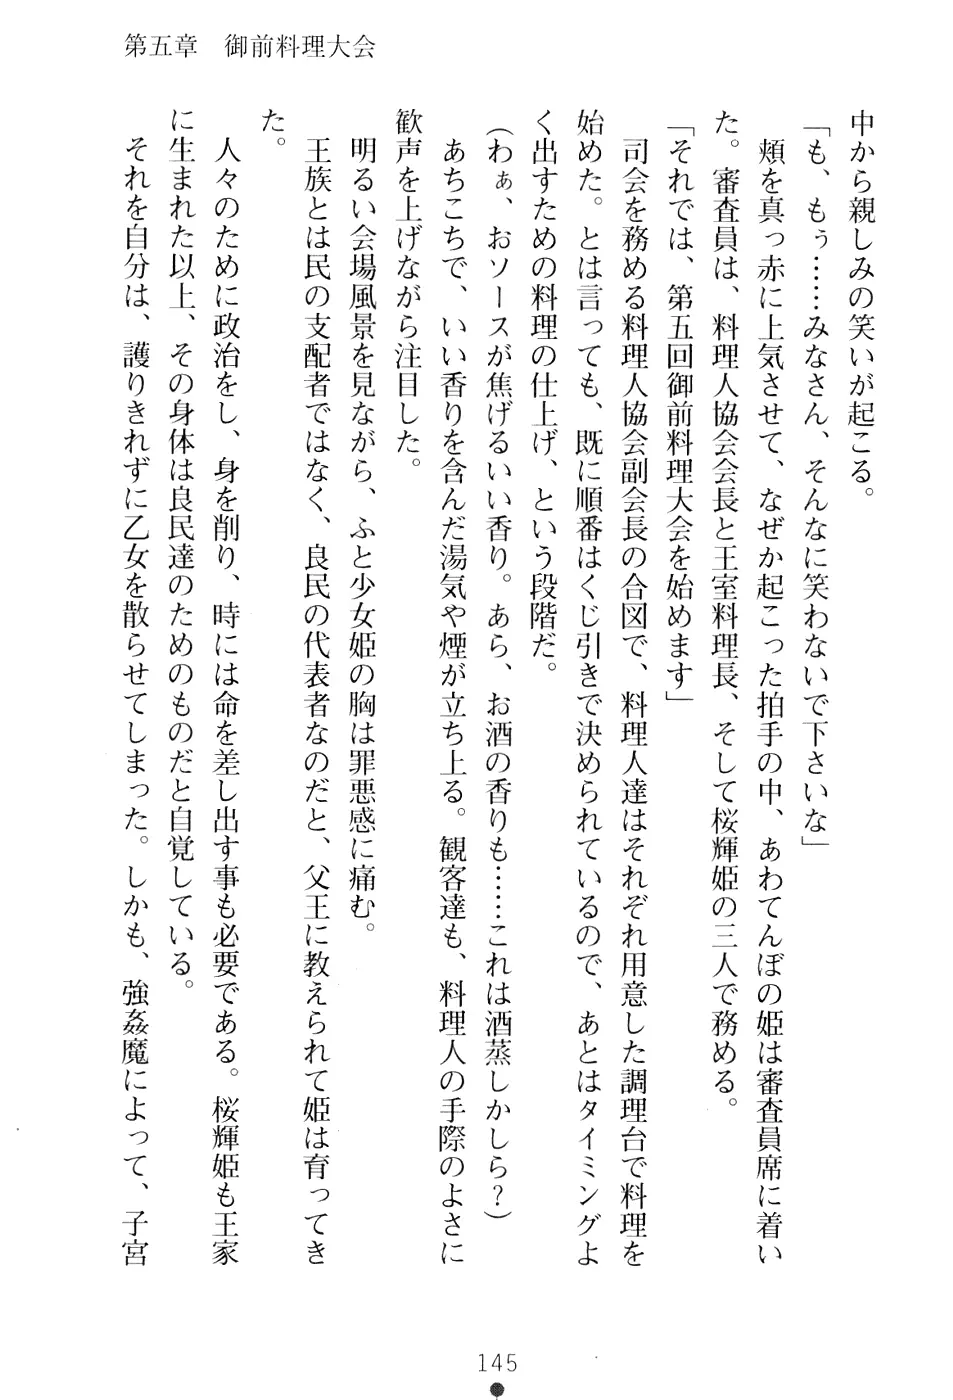 第五章　御前料理大会
中から親しみの笑いが起こる。
「も、もぅ……みなさん、そんなに笑わないで下さいな」
　頬を真っ赤に上気させて、なぜか起こった拍手の中、あわてんぼの姫は審査員席に着い
た。審査員は、料理人協会会長と王室料理長、そして桜輝姫の三人で務める。
「それでは、第五回御前料理大会を始めます」
　司会を務める料理人協会副会長の合図で、料理人達はそれぞれ用意した調理台で料理を
始めた。とは言っても、既に順番はくじ引きで決められているので、あとはタイミングよ
く出すための料理の仕上げ、という段階だ。
（わぁ、おソースが焦げるいい香り。あら、お酒の香りも……これは酒蒸しかしら？）
　あちこちで、いい香りを含んだ湯気や煙が立ち上る。観客達も、料理人の手際のよさに
歓声を上げながら注目した。
　明るい会場風景を見ながら、ふと少女姫の胸は罪悪感に痛む。
　王族とは民の支配者ではなく、良民の代表者なのだと、父王に教えられて姫は育ってき
た。
　人々のために政治をし、身を削り、時には命を差し出す事も必要である。桜輝姫も王家
に生まれた以上、その身体は良民達のためのものだと自覚している。
　それを自分は、護りきれずに乙女を散らせてしまった。しかも、強姦魔によって、子宮
145